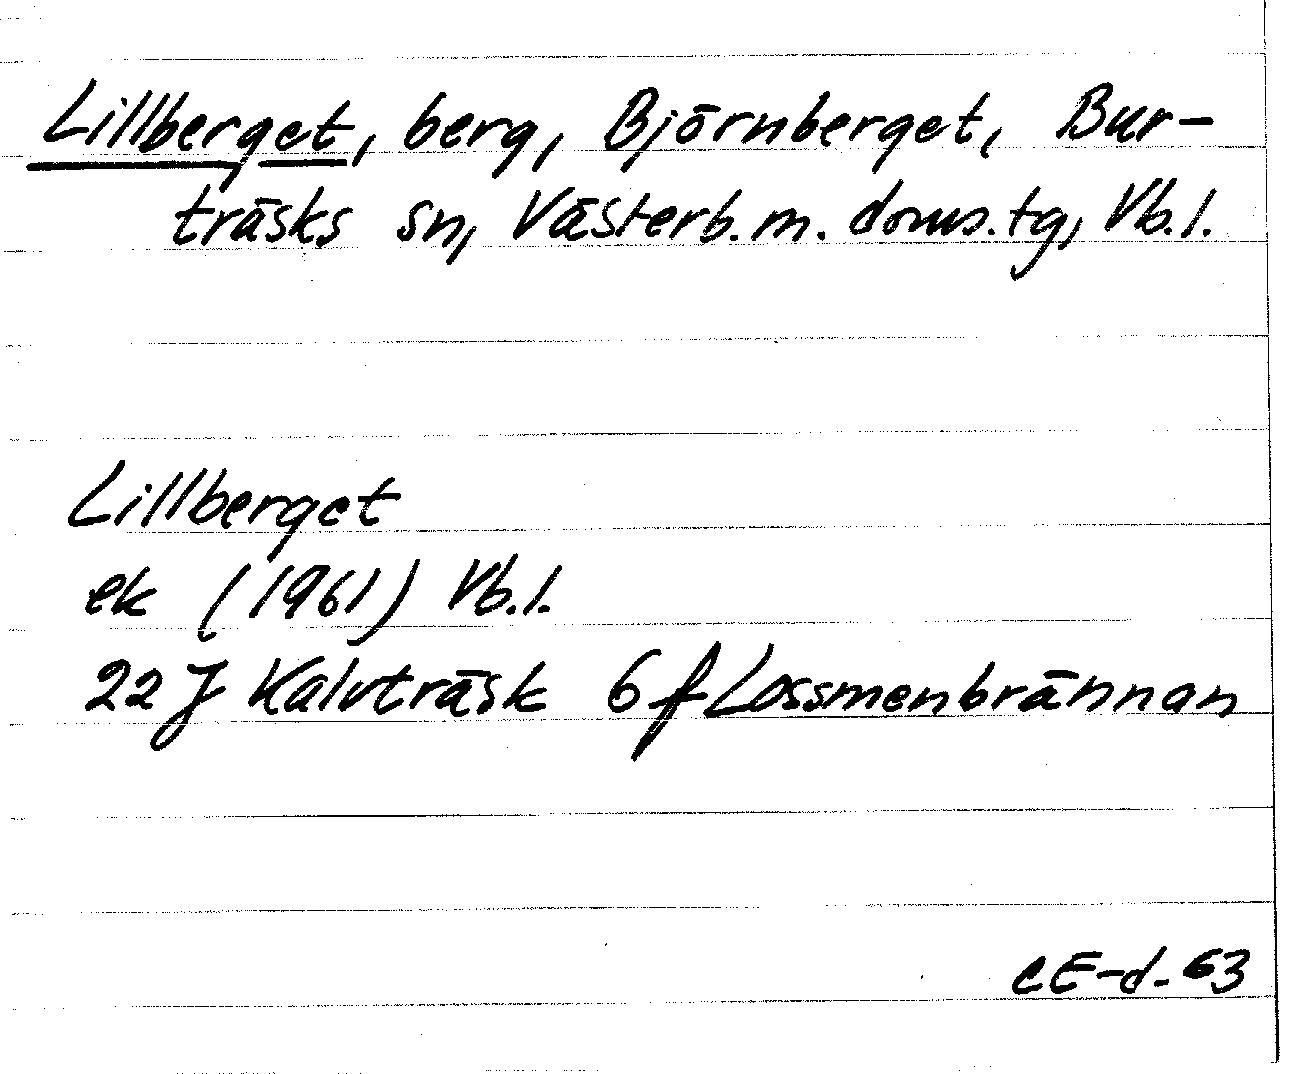 Lillberget, berg, Björnberget, Bur-
träsks sn, Västerb.m. doms.tg, Vb.l.
Lillberget
ek (1961) Vb.l.
22 J Kalvträsk 6 f Lossmenbrännan
CE-d. 63